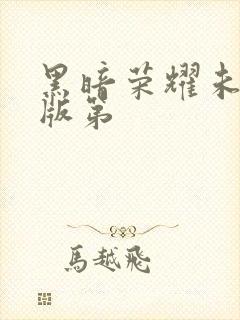 黑暗荣耀未
版第
馬越飛